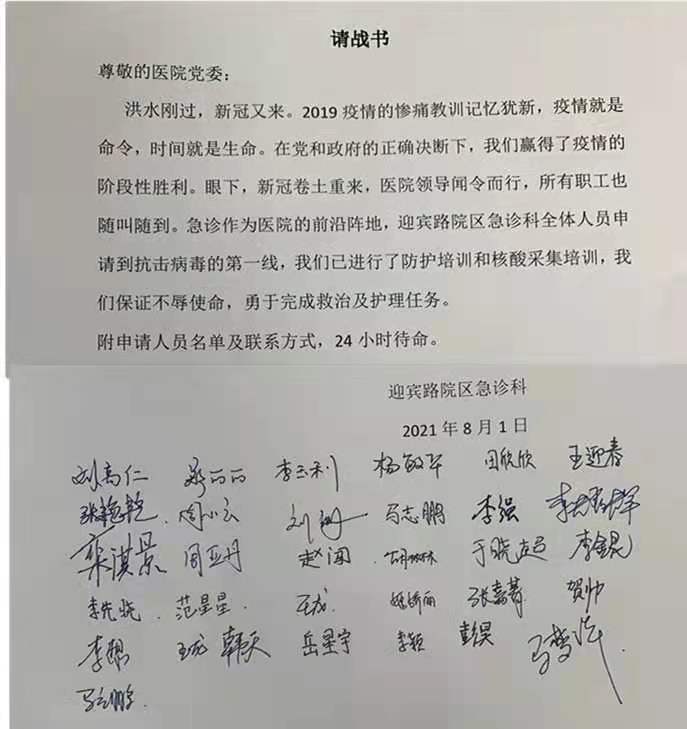 请战书
尊敬的医院党委：
洪水刚过，新冠又来。2019 疫情的惨痛教训记忆犹新，疫情就是
命令，时间就是生命。在党和政府的正确决断下，我们赢得了疫情的
阶段性胜利。眼下，新冠卷土重来，医院领导闻令而行，所有职工也
随叫随到。急诊作为医院的前沿阵地，迎宾路院区急诊科全体人员申
请到抗击病毒的第一线，我们已进行了防护培训和核酸采集培训，我
们保证不辱使命，勇于完成救治及护理任务。
附申请人员名单及联系方式，24 小时待命。
迎宾路院区急诊科
2021 年 8 月 1 日
刘高仁 李玉利 杨敏军 田欣欣 王迎春
张艳艳 周小云 马志鹏 李强
周亚丹 赵阔 胡林林 于晓超 李金锟
李先晓 范星星 王龙 张嘉菁 贺帅
王龙 韩天 岳星宇 李颖 彭昊